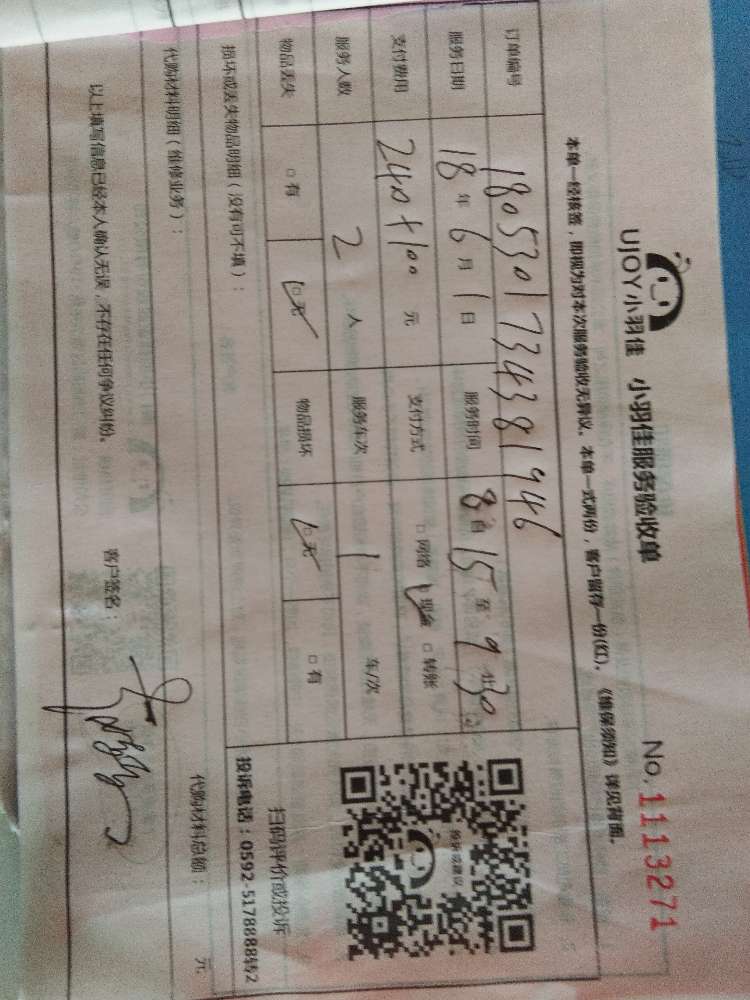 UJOY小羽佳 小羽佳服务验收单 No.1113271
本单一经核签，即视为对本次服务验收无异议。本单一式两份，客户留存一份(红)。《维保须知》详见背面。
订单编号 1805301734381946
服务日期 18年6月1日 服务时间 8 15 至 9 30
支付费用 240+100 元 支付方式 □网络 □现金 □转账
服务人数 2 人 服务车次 1 车/次
物品丢失 □有 □无 物品损坏 □无 □有
投诉或建议
扫码评价或投诉
投诉电话：0592-5178888转2
损坏或丢失物品明细（没有可不填）：
代购材料明细（维修业务）： 代购材料总额： 元
以上填写信息已经本人确认无误，不存在任何争议纠纷。 客户签名：